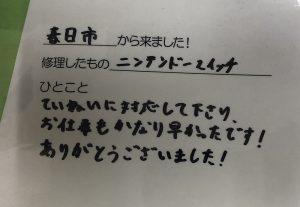 春日市から来ました!
修理したもの ニンテンドースイッチ
ひとこと
ていねいに対応して下さり、
お仕事もかなり早かったです!
ありがとうございました!